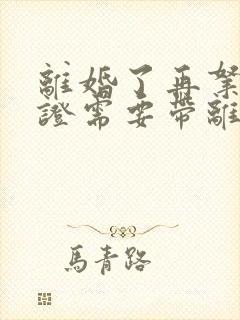 離婚了再
證需要帶離
馬青路